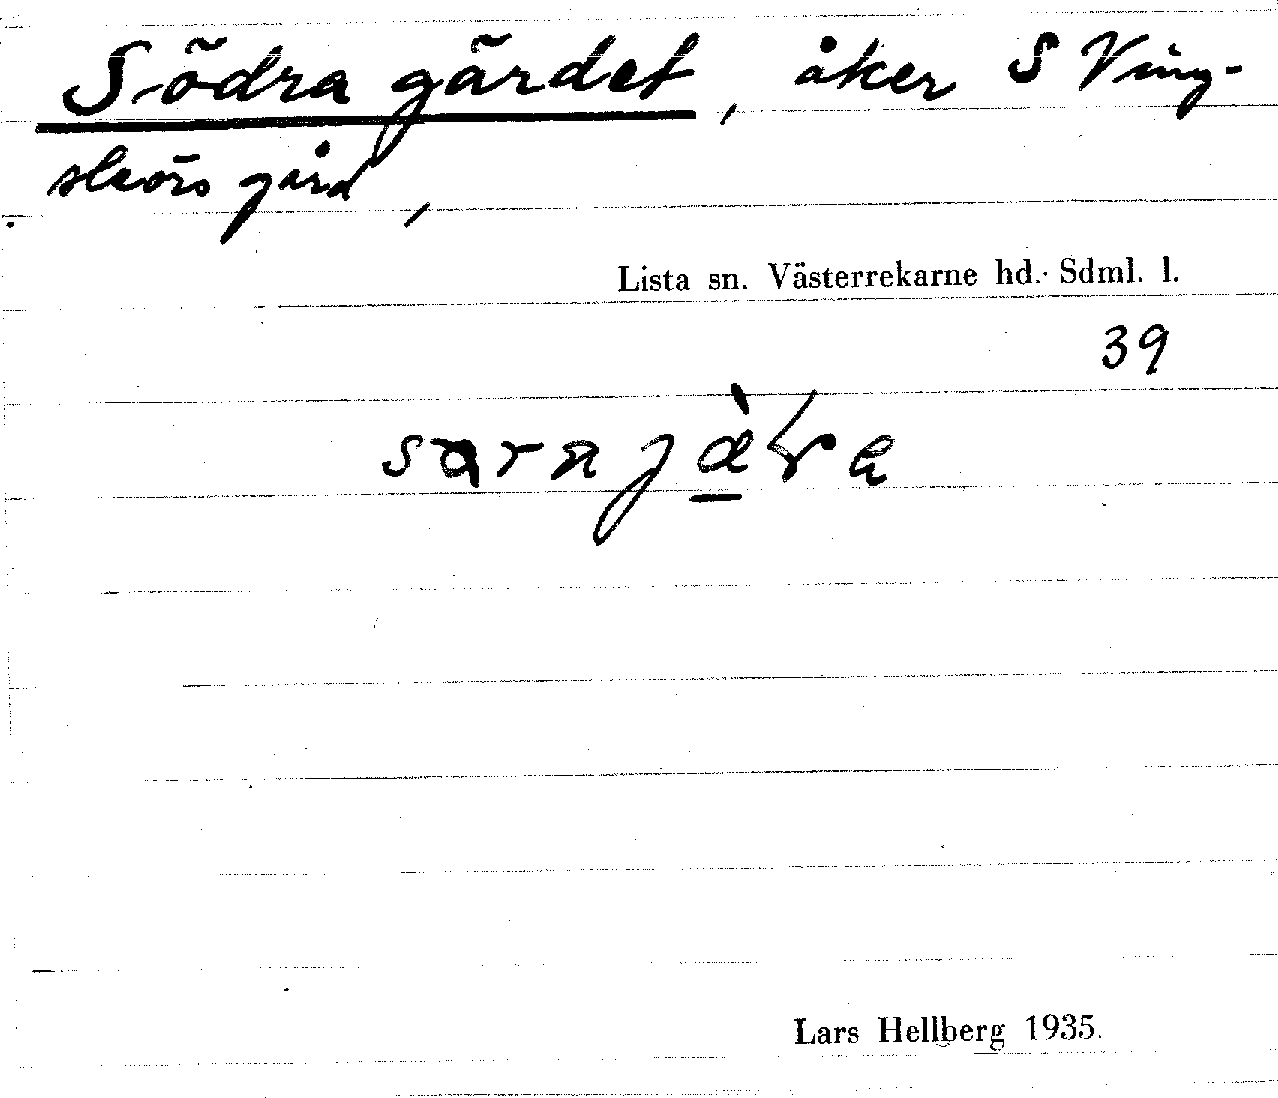 Södra gärdet, åker S Ving-
sleörs gård,
Lista sn. Västerrekarne hd. Sdml. l.
39
Lars Hellberg 1935.